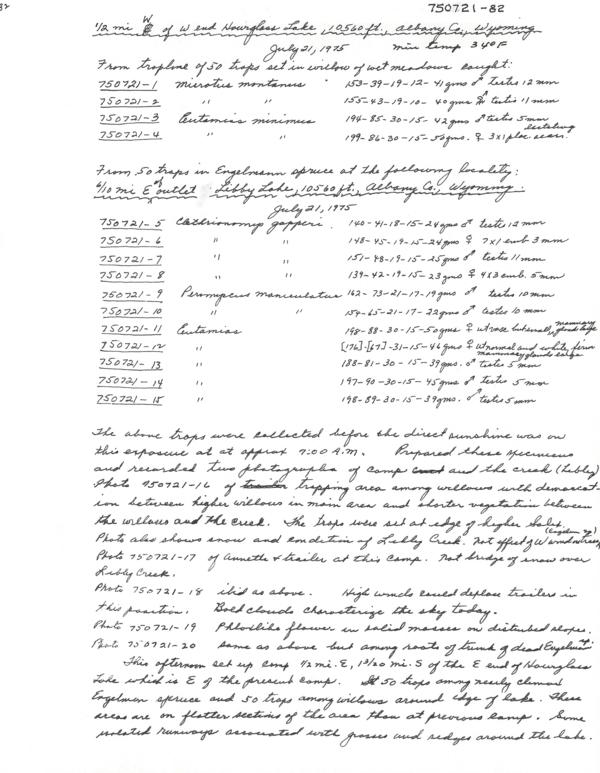 750721-82
1/2 mi W of W end Hourglass Lake, 10560 ft., Albany Co., Wyoming
July 21, 1975 min temp 34°F
From trapline of 50 traps set in willow of wet meadows caught:
750721-1 Microtus montanus 153-39-19-12-41 gms ♂ testis 12 mm
750721-2 " " 155-43-19-10-40 gms ♂ testis 11 mm
750721-3 Eutamias minimus 194-85-30-15-42 gms ♂ testis 5 mm
750721-4 " " 199-86-30-15-50 gms. ♀ 3x1 plac. scars. lactating
From 50 traps in Engelmann spruce at the following locality:
6/10 mi E of outlet Libby Lake, 10560 ft., Albany Co., Wyoming.
July 21, 1975
750721-5 Clethrionomys gapperi. 140-41-18-15-24 gms ♂ testis 12 mm
750721-6 " " 148-45-19-15-24 gms ♀ 7x1 emb 3 mm
750721-7 " " 151-48-19-15-25 gms ♂ testis 11 mm
750721-8 " " 139-42-19-15-23 gms ♀ 4x3 emb. 5 mm
750721-9 Peromyscus maniculatus 162-73-21-17-19 gms ♂ testis 10 mm
750721-10 " " 154-65-21-17-22 gms ♂ testes 10 mm
750721-11 Eutamias 198-88-30-15-50 gms ♀ mammary glands large
750721-12 " [176]-[67]-31-15-46 gms ♀ ut normal and white, firm mammary glands large
750721-13 " 188-81-30-15-39 gms. ♂ testis 5 mm
750721-14 " 197-90-30-15-45 gms ♂ testis 5 mm
750721-15 " 198-89-30-15-39 gms. ♂ testis 5 mm
The above traps were collected before the direct sunshine was on
this exposure at at approx 7:00 A.M. Prepared these specimens
and recorded two photographs of camp and the creek (Libby)
Photo 750721-16 of trapping area among willows with demarcat-
ion between higher willows in main area and shorter vegetation between
the willows and the creek. The traps were set at edge of higher Salix.
Photo also shows snow and condition of Libby Creek. Not effect of W wind on trees (Engelmn sp)
Photo 750721-17 of Annette & trailer at this camp. Not bridge of snow over
Libby Creek.
Photo 750721-18 ibid as above. High winds could deplace trailers in
this position. Bold clouds characterize the sky today.
Photo 750721-19 Phloxlike flower in solid masses on disturbed slopes.
Photo 750721-20 same as above but among roots of trunk of dead Engelman
This afternoon set up camp 1/2 mi. E, 13/20 mi. S of the E end of Hourglass
Lake which is E of the present camp. 50 traps among nearly climax
Engelman spruce and 50 traps among willows around edge of lake. These
areas are on flatter sections of the area than at previous camp. Some
isolated runways associated with grasses and sedges around the lake.